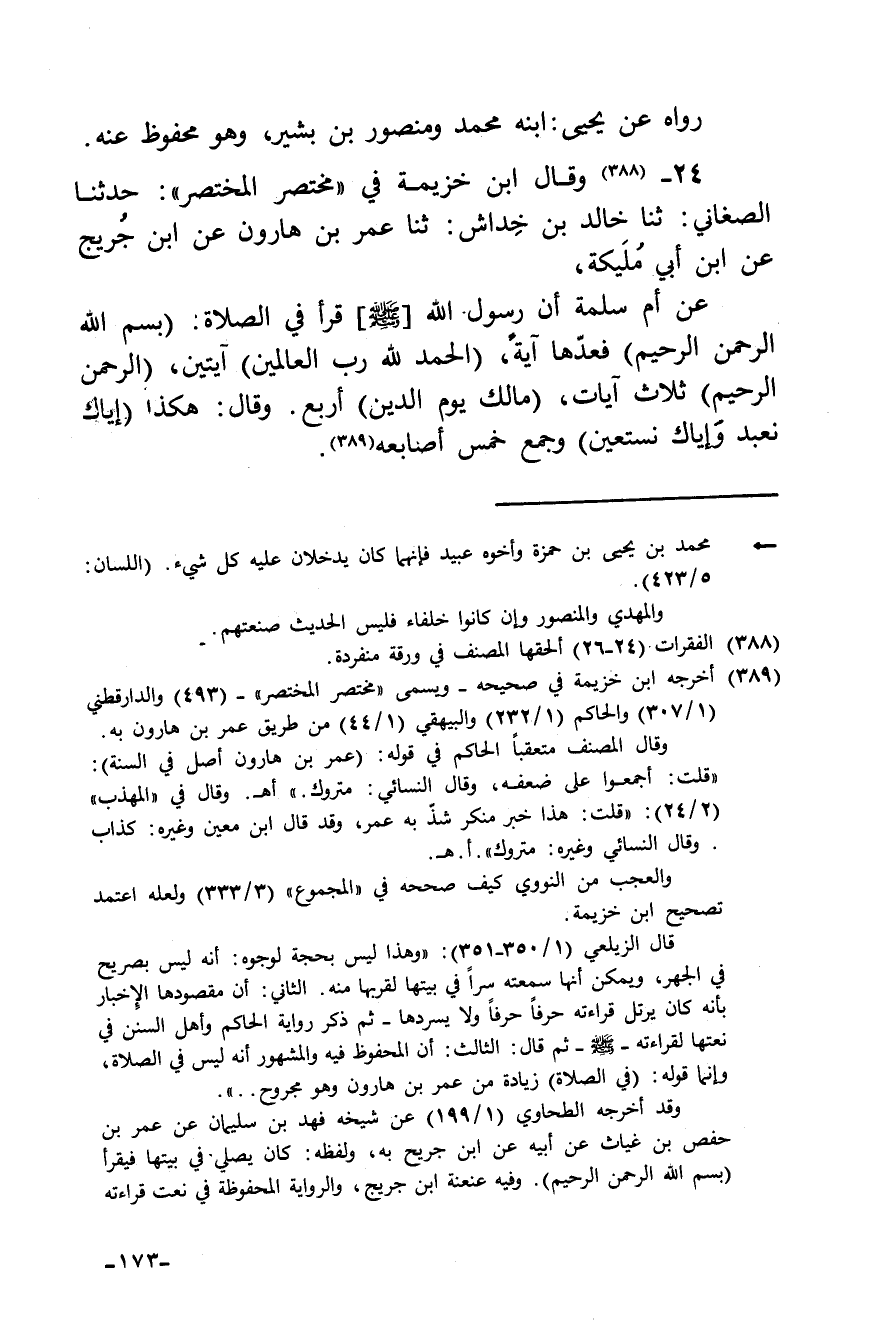 رواه عن يحيى: ابنه محمد ومنصور بن بشير، وهو محفوظ عنه.
٢٤ـ (٣٨٨) وقـال ابن خزيمـة في «مختصر المختصر»: حدثنـا
الصغاني: ثنا خالد بن خِداش: ثنا عمر بن هارون عن ابن جُريج
عن ابن أبي مُلَيكة،
عن أم سلمة أن رسول الله [ﷺ] قرأ في الصلاة: (بسم الله
الرحمن الرحيم) فعدّها آيةً، (الحمد لله رب العالمين) آيتين، (الرحمن
الرحيم) ثلاث آيات، (مالك يوم الدين) أربع. وقال: هكذا (إياك
نعبد وَإياك نستعين) وجمع خمس أصابعه(٣٨٩).
← محمد بن يحيى بن حمزة وأخوه عبيد فإنهما كان يدخلان عليه كل شيء. (اللسان:
٤٢٣/٥).
والمهدي والمنصور وإن كانوا خلفاء فليس الحديث صنعتهم.
(٣٨٨) الفقرات (٢٤-٢٦) ألحقها المصنف في ورقة منفردة.
(٣٨٩) أخرجه ابن خزيمة في صحيحه ـ ويسمى «مختصر المختصر» ـ (٤٩٣) والدارقطني
(٣٠٧/١) والحاكم (٢٣٢/١) والبيهقي (٤٤/١) من طريق عمر بن هارون به.
وقال المصنف متعقباً الحاكم في قوله: (عمر بن هارون أصل في السنة):
«قلت: أجمعـوا على ضعفـه، وقال النسائي: متروك.» أهـ. وقال في «المهذب»
(٢٤/٢): «قلت: هذا خبر منكر شذّ به عمر، وقد قال ابن معين وغيره: كذاب
. وقال النسائي وغيره: متروك».أ.هـ.
والعجب من النووي كيف صححه في «المجموع» (٣٣٣/٣) ولعله اعتمد
تصحيح ابن خزيمة.
قال الزيلعي (٣٥٠/١-٣٥١): «وهذا ليس بحجة لوجوه: أنه ليس بصريح
في الجهر، ويمكن أنها سمعته سراً في بيتها لقربها منه. الثاني: أن مقصودها الإخبار
بأنه كان يرتل قراءته حرفاً حرفاً ولا يسردها ـ ثم ذكر رواية الحاكم وأهل السنن في
نعتها لقراءته ـ ﷺ ـ ثم قال: الثالث: أن المحفوظ فيه والمشهور أنه ليس في الصلاة،
وإنما قوله: (في الصلاة) زيادة من عمر بن هارون وهو مجروح. . .».
وقد أخرجه الطحاوي (١٩٩/١) عن شيخه فهد بن سليمان عن عمر بن
حفص بن غياث عن أبيه عن ابن جريح به، ولفظه: كان يصلي في بيتها فيقرأ
(بسم الله الرحمن الرحيم). وفيه عنعنة ابن جريج، والرواية المحفوظة في نعت قراءته
-١٧٣-